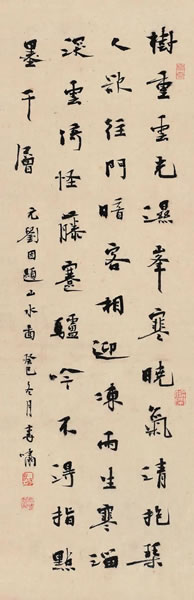 樹重雲光濕峯寒曉氣清抱琴
人欲往門暗客相迎凍雨生寒溜
深雲怪藤蹇驢吟不得指點
墨千層
元劉因題山水啚 癸巳冬月嘯